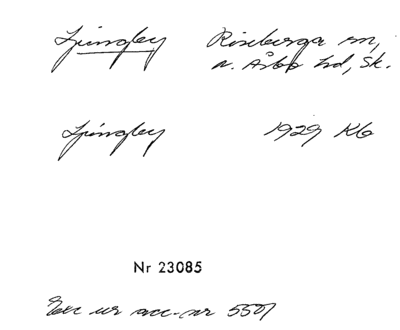 Ljungby Riseberga sn,
N. Åsbo hd, Sk.
Ljungby 1929 KG
Nr 23085
Exc ur acc.-nr 5501